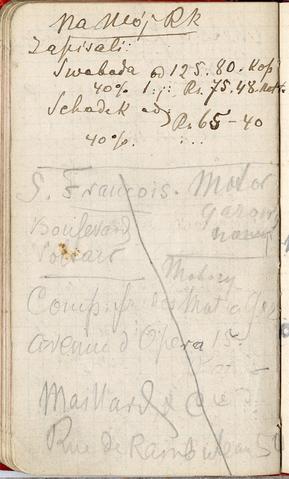 na mój Rk
Zapisali:
Swoboda od 125.80. Kop
40% Rs. 75.48. Kop.
Schadek od
Rs 65-40
40%.
S. François. Motor
Boulevard
Voltair
Motory
Comp. fr.
avenue d'Opera 15
Maillard & Cie
Rue de Rambuteau 5